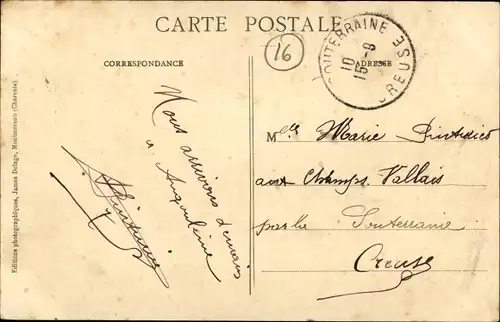 CARTE POSTALE
16
CORRESPONDANCE
ADRESSE
SOUTERRAINE
10
15 - 8
CREUSE
Nous arriverons demain
à Angoulême
Mlle Marie
aux Champs Vallais
par la Souterraine
Creuse
Editions photographiques, James Delage, Montmoreau (Charente)